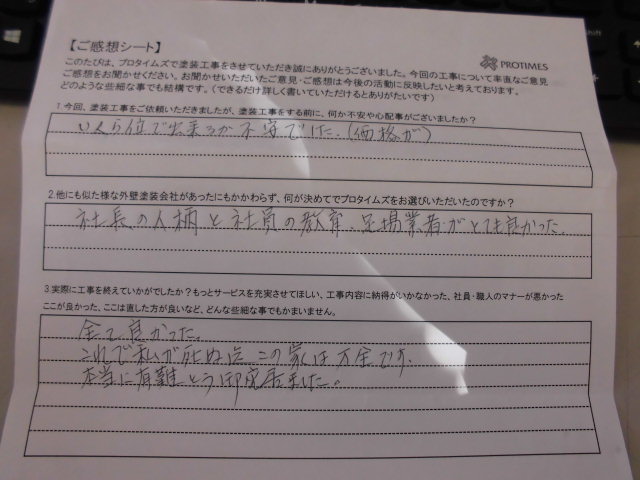 【ご感想シート】
PROTIMES
このたびは、プロタイムズで塗装工事をさせていただき誠にありがとうございました。今回の工事について率直なご意見
ご感想をお聞かせください。お聞かせいただいたご意見・ご感想は今後の活動に反映したいと考えております。
どのような些細な事でも結構です。(できるだけ詳しく書いていただけるとありがたいです)
1.今回、塗装工事をご依頼いただきましたが、塗装工事をする前に、何か不安や心配事がございましたか?
いくら位で出来るか不安でした。(価格が)
2.他にも似た様な外壁塗装会社があったにもかかわらず、何が決めてでプロタイムズをお選びいただいたのですか?
社長の人柄と社員の教育、足場業者がとても良かった。
3.実際に工事を終えていかがでしたか?もっとサービスを充実させてほしい、工事内容に納得がいかなかった、社員・職人のマナーが悪かった
ここが良かった、ここは直した方が良いなど、どんな些細な事でもかまいません。
全て良かった。
これで私が死ぬ迄この家は万全です。
本当に有難とう御座居ました。